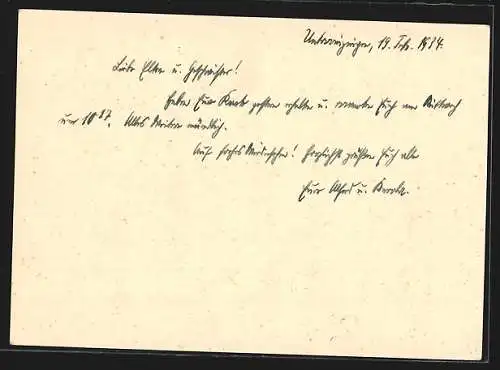 Unterreizingen, 19. Feb. 1934.
Liebe Elke u. Geschwister!
Haben Eure Karte gestern erhalten u. erwarten Euch am Mittwoch
um 10 37. Alles Weitere mündlich.
Auf frohes Wiedersehen! Herzlichst grüßen Euch alle
Eure Alfred u. Karola.